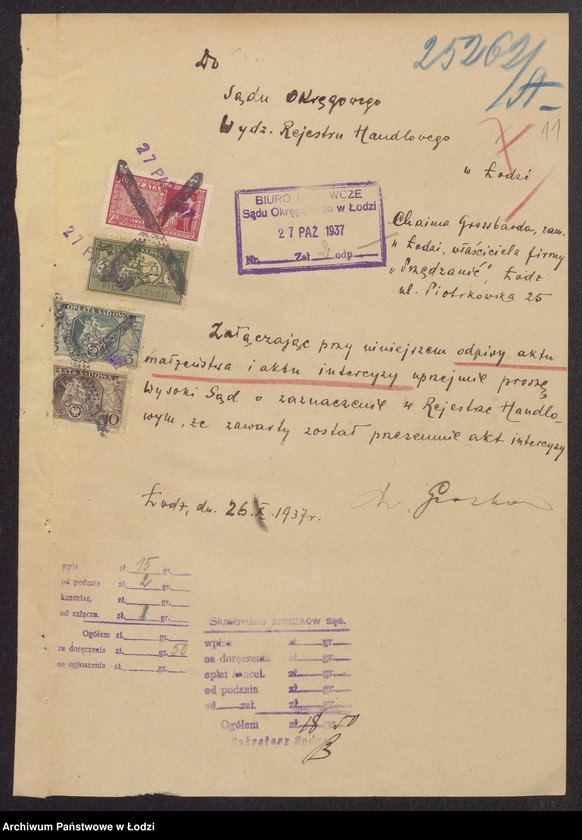 25262/A
11
Do
Sądu Okręgowego
Wydz. Rejestru Handlowego
w Łodzi
27 PAŹ
OPŁATA
27 PAŹ
PIĘĆ ZŁOTYCH
OPŁATA SĄDOWA
3
OPŁATA SĄDOWA
10
BIURO
Sądu Okręgowego w Łodzi
27 PAŹ 1937
Nr. Zał. odp
Chaima Grossbarda, zam.
w Łodzi, właściciela firmy
"Przędzanić", Łódź
ul. Piotrkowska 25
Załączając przy niniejszem odpisy aktu
małżeństwa i aktu intercyzy uprzejmie proszę
Wysoki Sąd o zaznaczenie w Rejestrze Handlo-
wym, że zawarty został przezemnie akt intercyzy
Łódź, dn. 26 X 1937 r.
wpis zł. 15 gr.
od podania zł. 2 gr.
kancelar. zł. gr.
od załącz. zł. 1 gr.
Ogółem zł. gr.
za doręczenia zł. gr. 50
na ogłoszenie zł. gr.
Skasowano znaczków sąd.
wpisu zł. gr.
na doręczenia zł. gr.
opłat kancel. zł. gr.
od podania zł. gr.
od zał. zł. gr.
Ogółem zł. 18 gr. 50
Sekretarz Sądu
Archiwum Państwowe w Łodzi